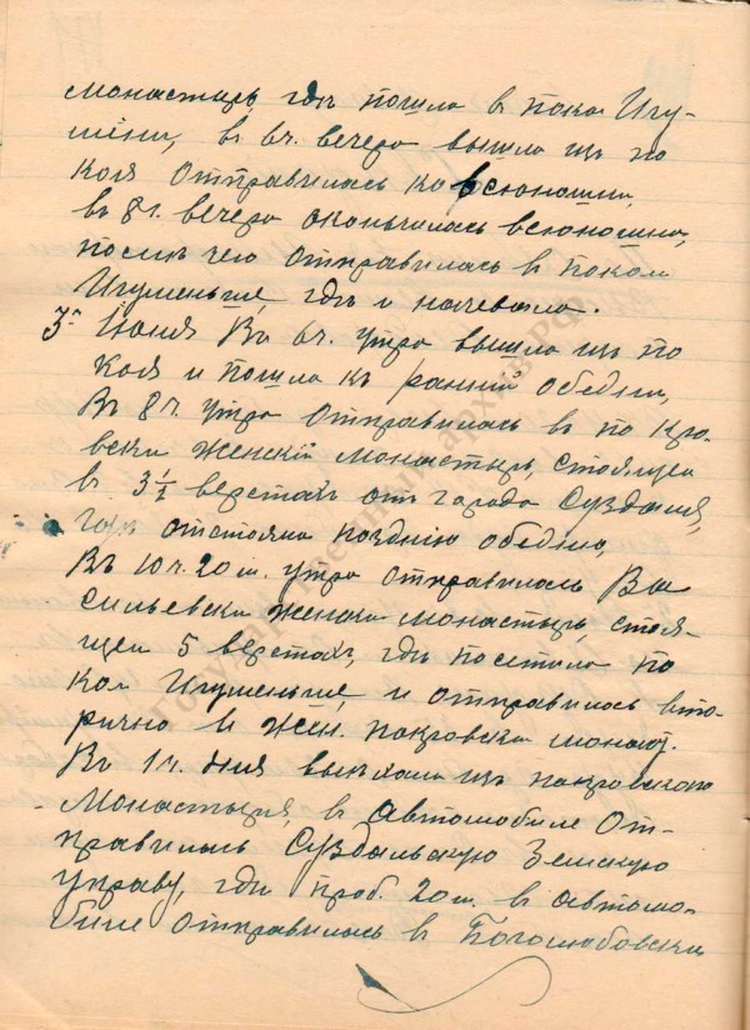 монастырь, гдѣ пошла в покои Игу-
мѣни, в 6ч. вечера вышла изъ по
коя отправилась ко всюношни,
въ 8 ч. вечера окончилась всюношни,
послѣ чего отправилась в покои
Игуменьше, гдѣ и начевала.
3го Июня Въ 6ч. утра вышла изъ по
коя и пошла къ ранній обедни,
Въ 8ч. утра отправилась въ по кро-
вски женскій монастырь, стоящеи
в 3 1/2 верстахъ отъ города Суздаля,
гдѣ отстояна позднію обедню,
Въ 10ч. 20м. утра отправилась Ва
сильевски женски монастырь, стоя-
щеи 5 верстахъ, гдѣ посетила по
кои Игуменьше, и отправилась вто-
рично в жен. покровски монаст.
Въ 1ч. дня выехала изъ покровского
Монастыря, в автомобиле От-
правилась Суздальскую Земскую
управу, гдѣ проб. 20м. в автомо-
биле отправилась в Боголюбовски
Государственный архив РФ